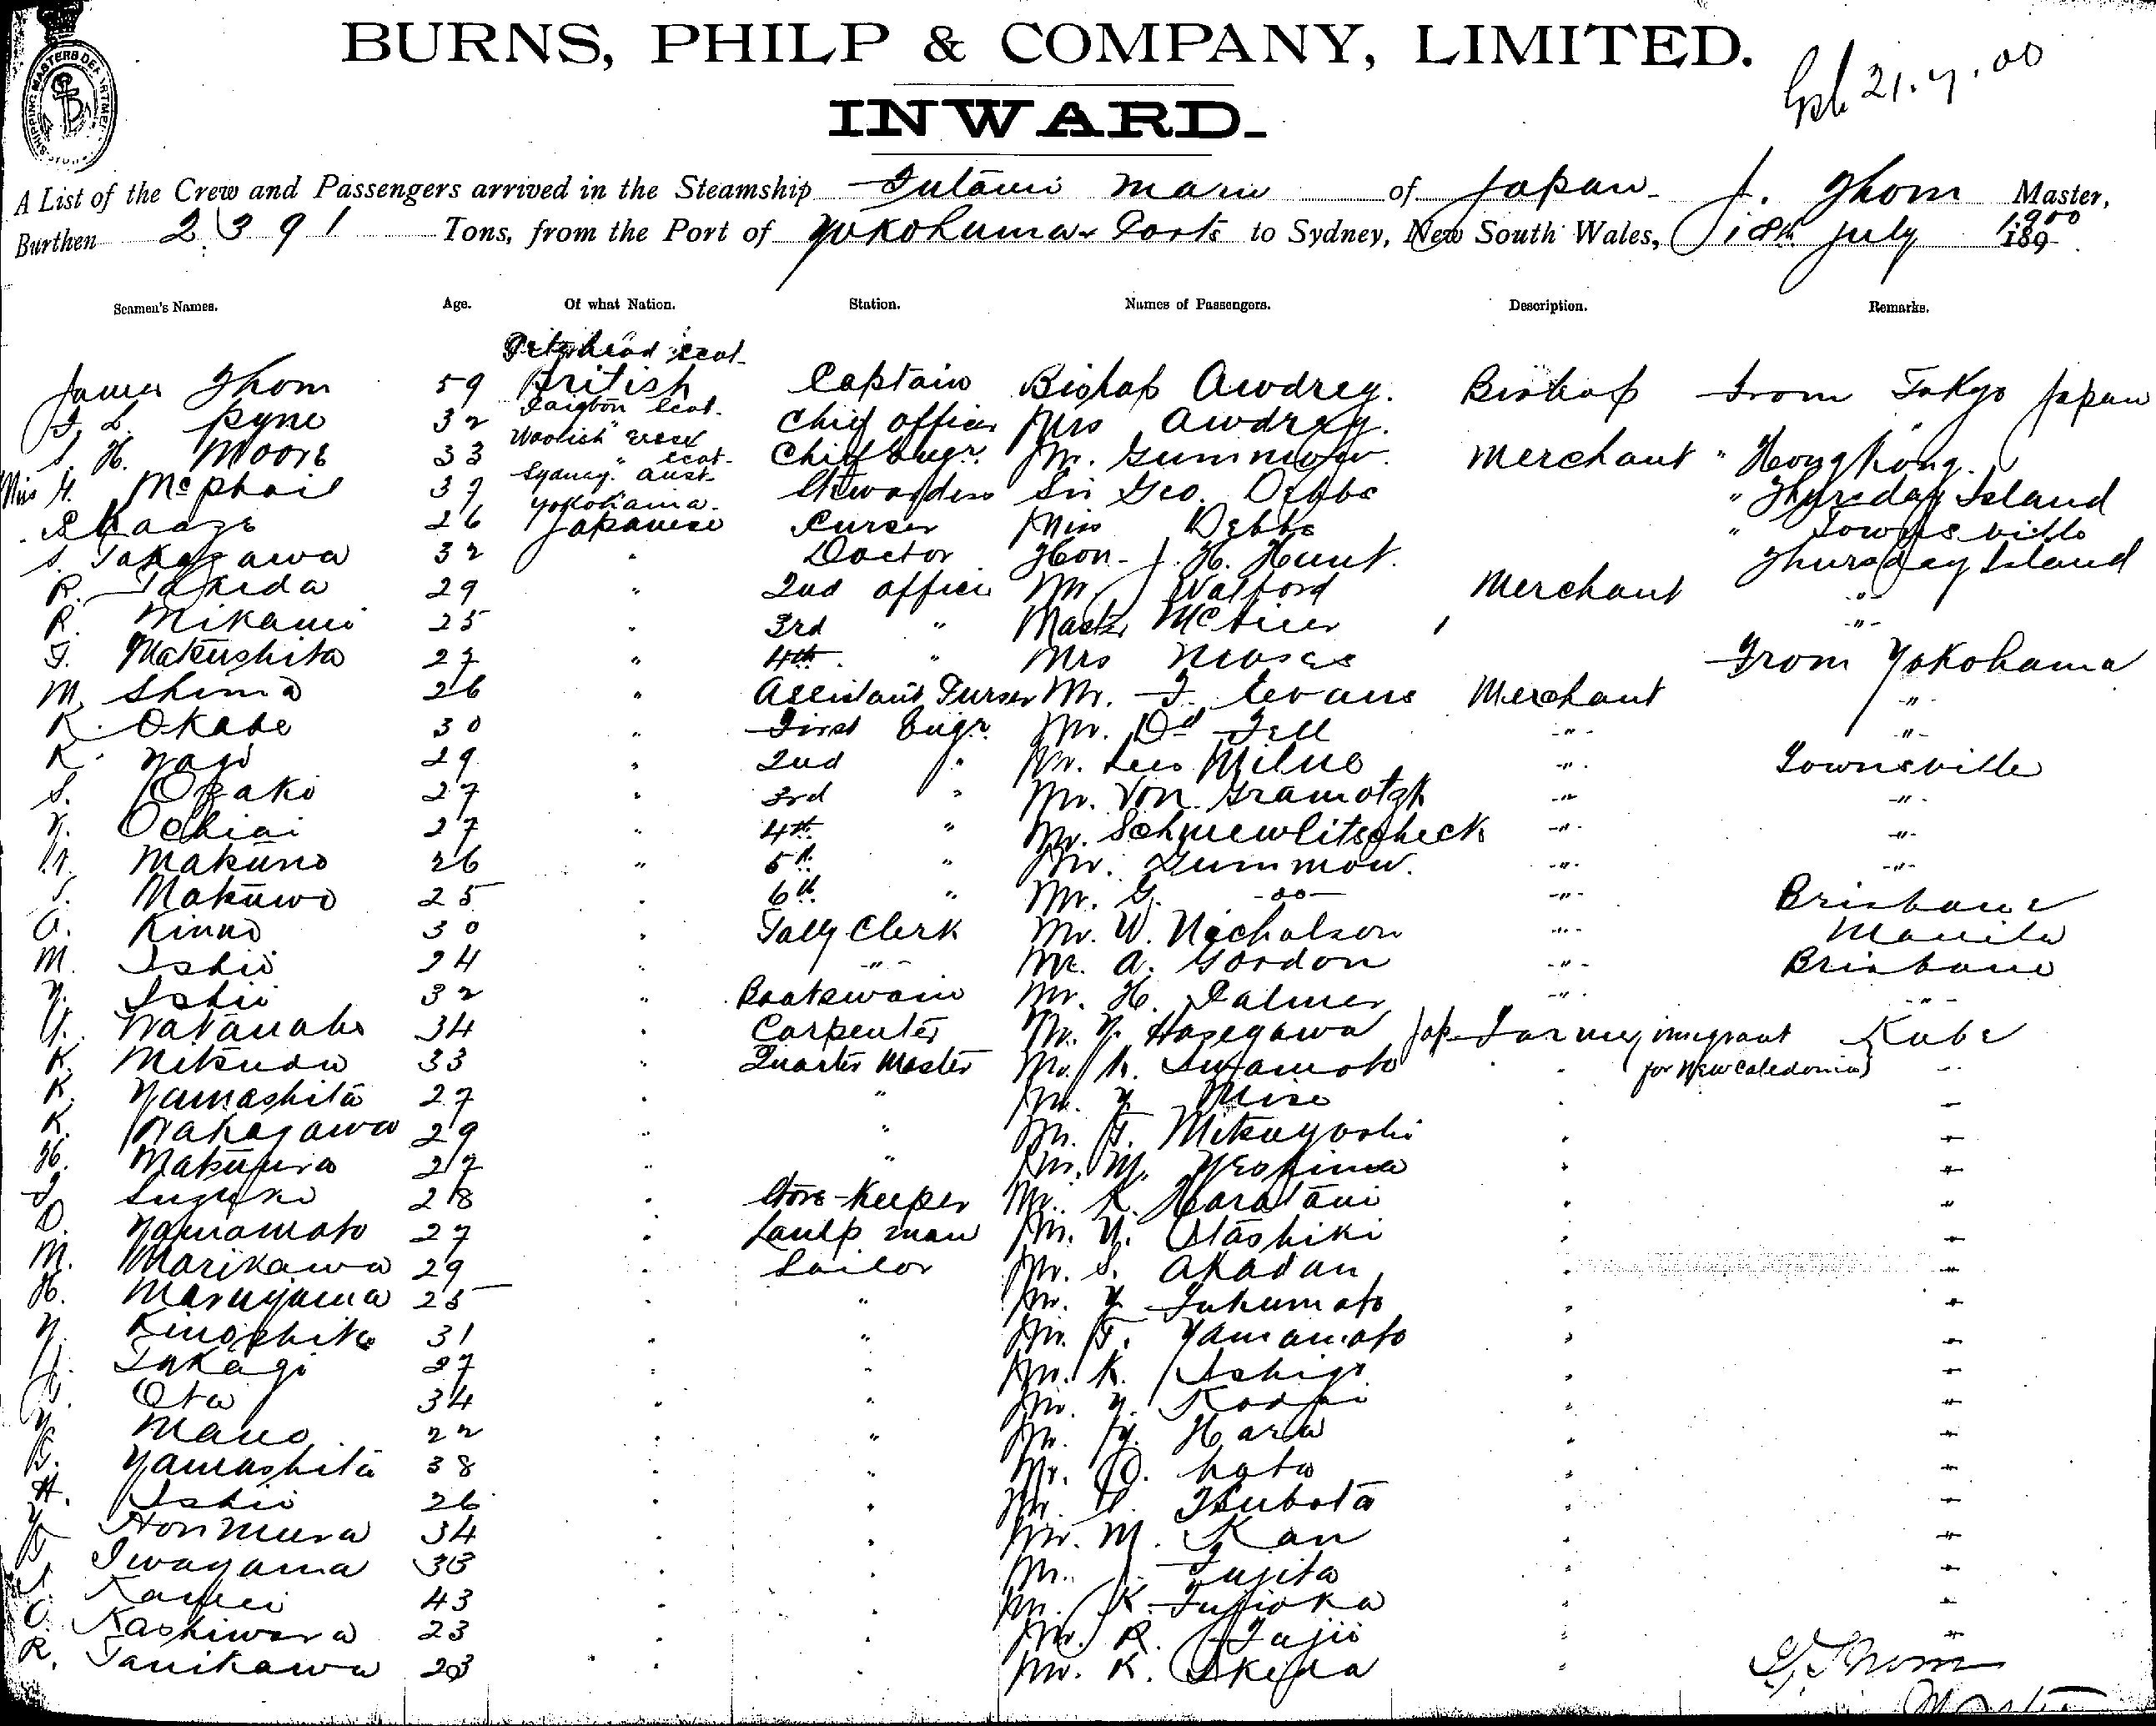 BURNS, PHILP & COMPANY, LIMITED.
21.7.00
INWARD.
A List of the Crew and Passengers arrived in the Steamship Futami Maru of Japan J. Thom Master,
Burthen 2391 Tons, from the Port of Yokohama & Ports to Sydney, New South Wales, 18th July 1900 189
Seamen's Names. Age. Of what Nation. Station. Names of Passengers. Description. Remarks.
Peterhead Scot.
James Thom 59 British Captain Bishop Awdrey. Bishop From Tokyo Japan
Pyne 32 Scot. Chief Officer Mrs Awdrey.
H. Moore 33 Chief Engr. Mr. Gummow. Merchant " Hongkong.
Miss McPhail 37 Sydney. Aust. Stewardess Sir Geo. Dibbs " Thursday Island
26 Yokohama. Japanese Purser Miss Debbs " Townsville
S. Takagawa 32 " Doctor Hon. J. H. Hunt. Thursday Island
R. Takeda 29 " 2nd officer Mr J Walford Merchant "
R. Mikami 25 " 3rd " Master "
Matsushita 27 " 4th " Mrs Moses From Yokohama
M. Shima 26 " Assistant Purser Mr. J. Evans Merchant "
K. Okabe 30 " First Engr. Mr. Dd Fell " "
K. Yagi 29 " 2nd " Mr. Milne " Townsville
S. Ozaki 27 " 3rd " Mr. Von " "
Ochiai 27 " 4th " Mr. " "
Makuno 26 " 5th " Mr. Gummow. " "
Makuwo 25 " 6th " Mr. G. -do- " Brisbane
A. Kinno 30 " Tally Clerk Mr. W. Nicholson " Manila
M. Ishii 24 " " Mr. A. Gordon " Brisbane
Y. Ishii 32 " Boatswain Mr. H. Palmer " "
Watanabe 34 " Carpenter Mr. Y. Hasegawa Jap. immigrant Kobe
K. Mitsuda 33 " Quarter Master Mr. Iwamoto " for New Caledonia "
K. Yamashita 27 " " Mr. Y Mise " "
K. Nakagawa 29 " " Mr. T. Mitsuyoshi " "
H. 27 " " Mr. M. Yeshima " "
Suzuki 28 " Store-Keeper Mr. K. Haratani " "
Yamamoto 27 " Lamp man Mr. " "
M. Marikawa 29 " Sailor Mr. S. Akadan " "
H. Maruyama 25 " " Mr. Y. Fukumoto " "
Y. Kinoshita 31 " " Mr. T. Yamamoto " "
Takagi 27 " " Mr. K. " "
Ota 34 " " Mr. Y. " "
Mano 22 " " Mr. Y. Hara " "
Yamashita 38 " " Mr. " "
H. Ishii 26 " " Mr. Tsubota " "
Horimura 34 " " Mr. M. Kan " "
Iwayama 33 " " Mr. Fujita " "
43 " " Mr. K. Fujioka " "
Kashiwara 23 " " Mr. R. Fujii " "
R. Tanikawa 23 " " Mr. K. Ikeda " J. Thom
Master